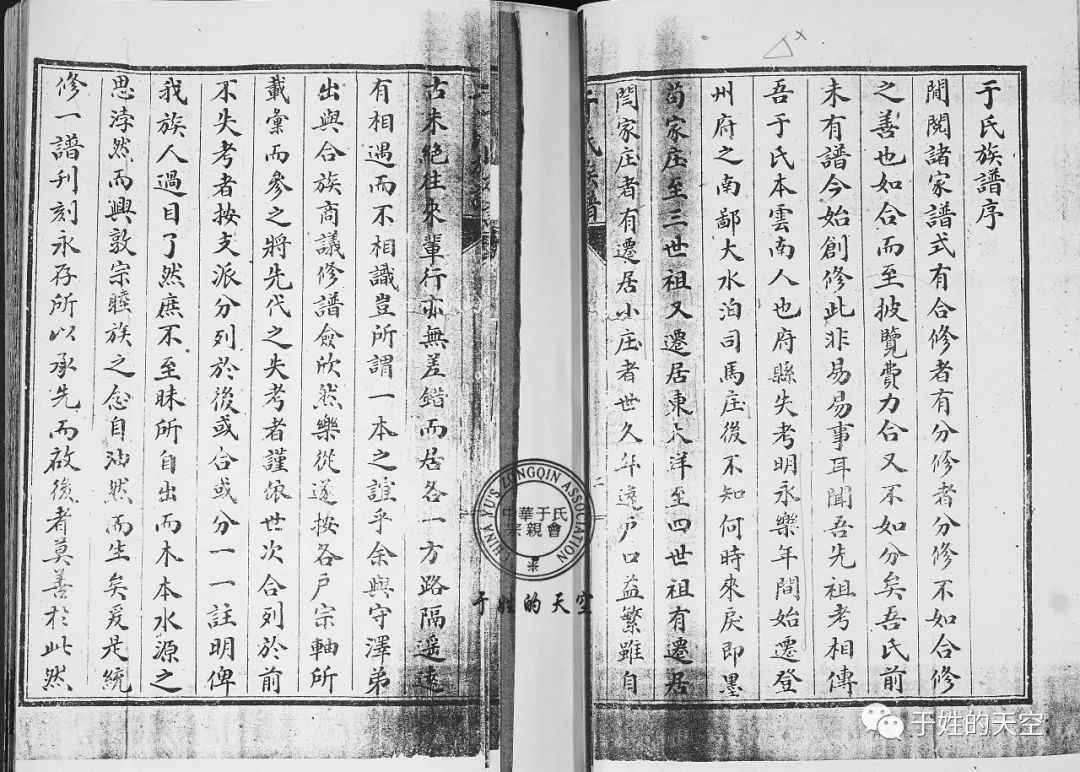 于氏族譜序
閒閱諸家譜式有合修者有分修者分修不如合修
之善也如合而至披覽費力合又不如分矣吾氏前
未有譜今始創修此非易易事耳聞吾先祖考相傳
吾于氏本雲南人也府縣失考明永樂年間始遷登
州府之南鄙大水泊司馬庄後不知何時來戾即墨
荀家庄至三世祖又遷居東大洋至四世祖有遷居
閆家庄者有遷居小庄者世久年遠戶口益繁雖自
于氏族譜
二
古未絕往來輩行亦無差錯而居各一方路隔遥遠
有相遇而不相識豈所謂一本之誼乎余與守澤弟
出與合族商議修譜僉欣然樂從遂按各戶宗軸所
載彙而參之將先代之失考者謹依世次合列於前
不失考者按支派分列於後或合或分一一註明俾
我族人過目了然庶不至昧所自出而木本水源之
思浡然而興敦宗睦族之念自油然而生矣爰是統
修一譜刊刻永存所以承先而啟後者莫善於此然
CHINA YU'S ZONGQIN ASSOCIATION
中華于氏
宗親會
于姓的天空
于姓的天空